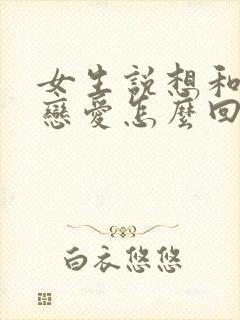 女生说想和
戀愛怎麼回
白衣悠悠